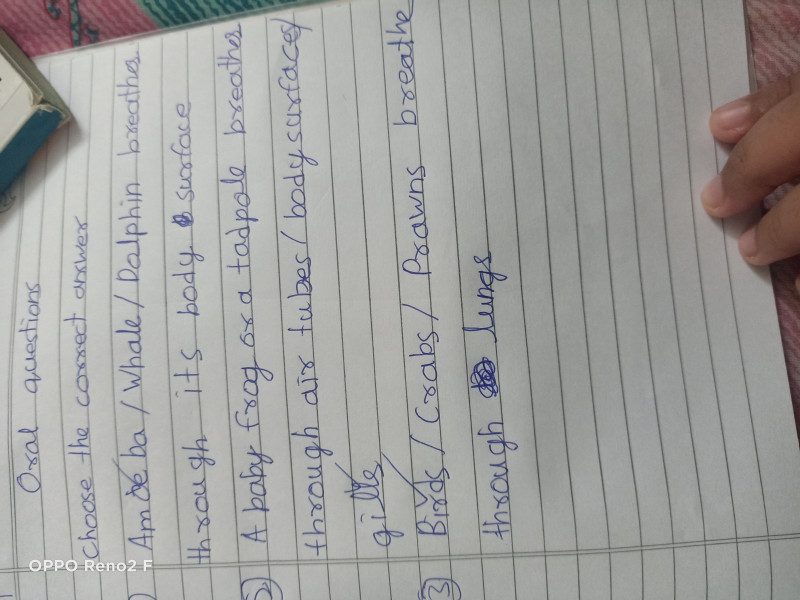 Oral questions
Choose the correct answer
) Amoeba/Whale/Dolphin breathes
through its body surface
2) A baby frog or a tadpole breathes
through air tubes/body surfaces/
gills
3) Birds/Crabs/Prawns breathe
through lungs
OPPO Reno2 F